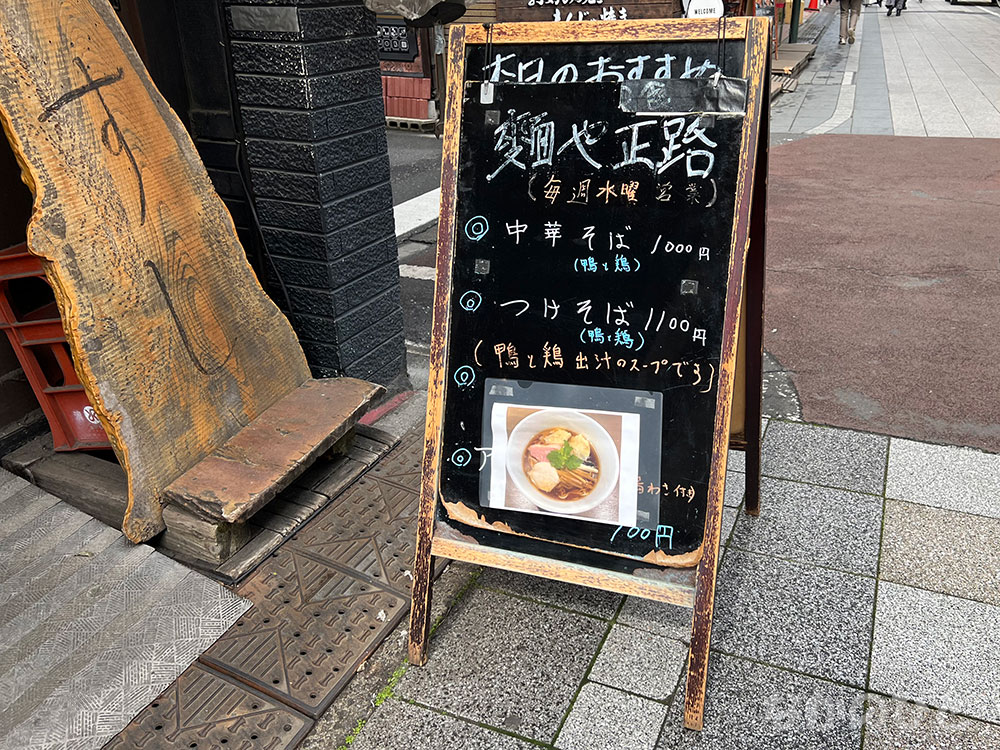 WELCOME
本日のおすすめ
麺や正路
(毎週水曜営業)
◎ 中華そば 1000円
(鴨と鶏)
◎ つけそば 1100円
(鴨と鶏)
(鴨と鶏出汁のスープです)
◎
◎ ア
わさ付
700円